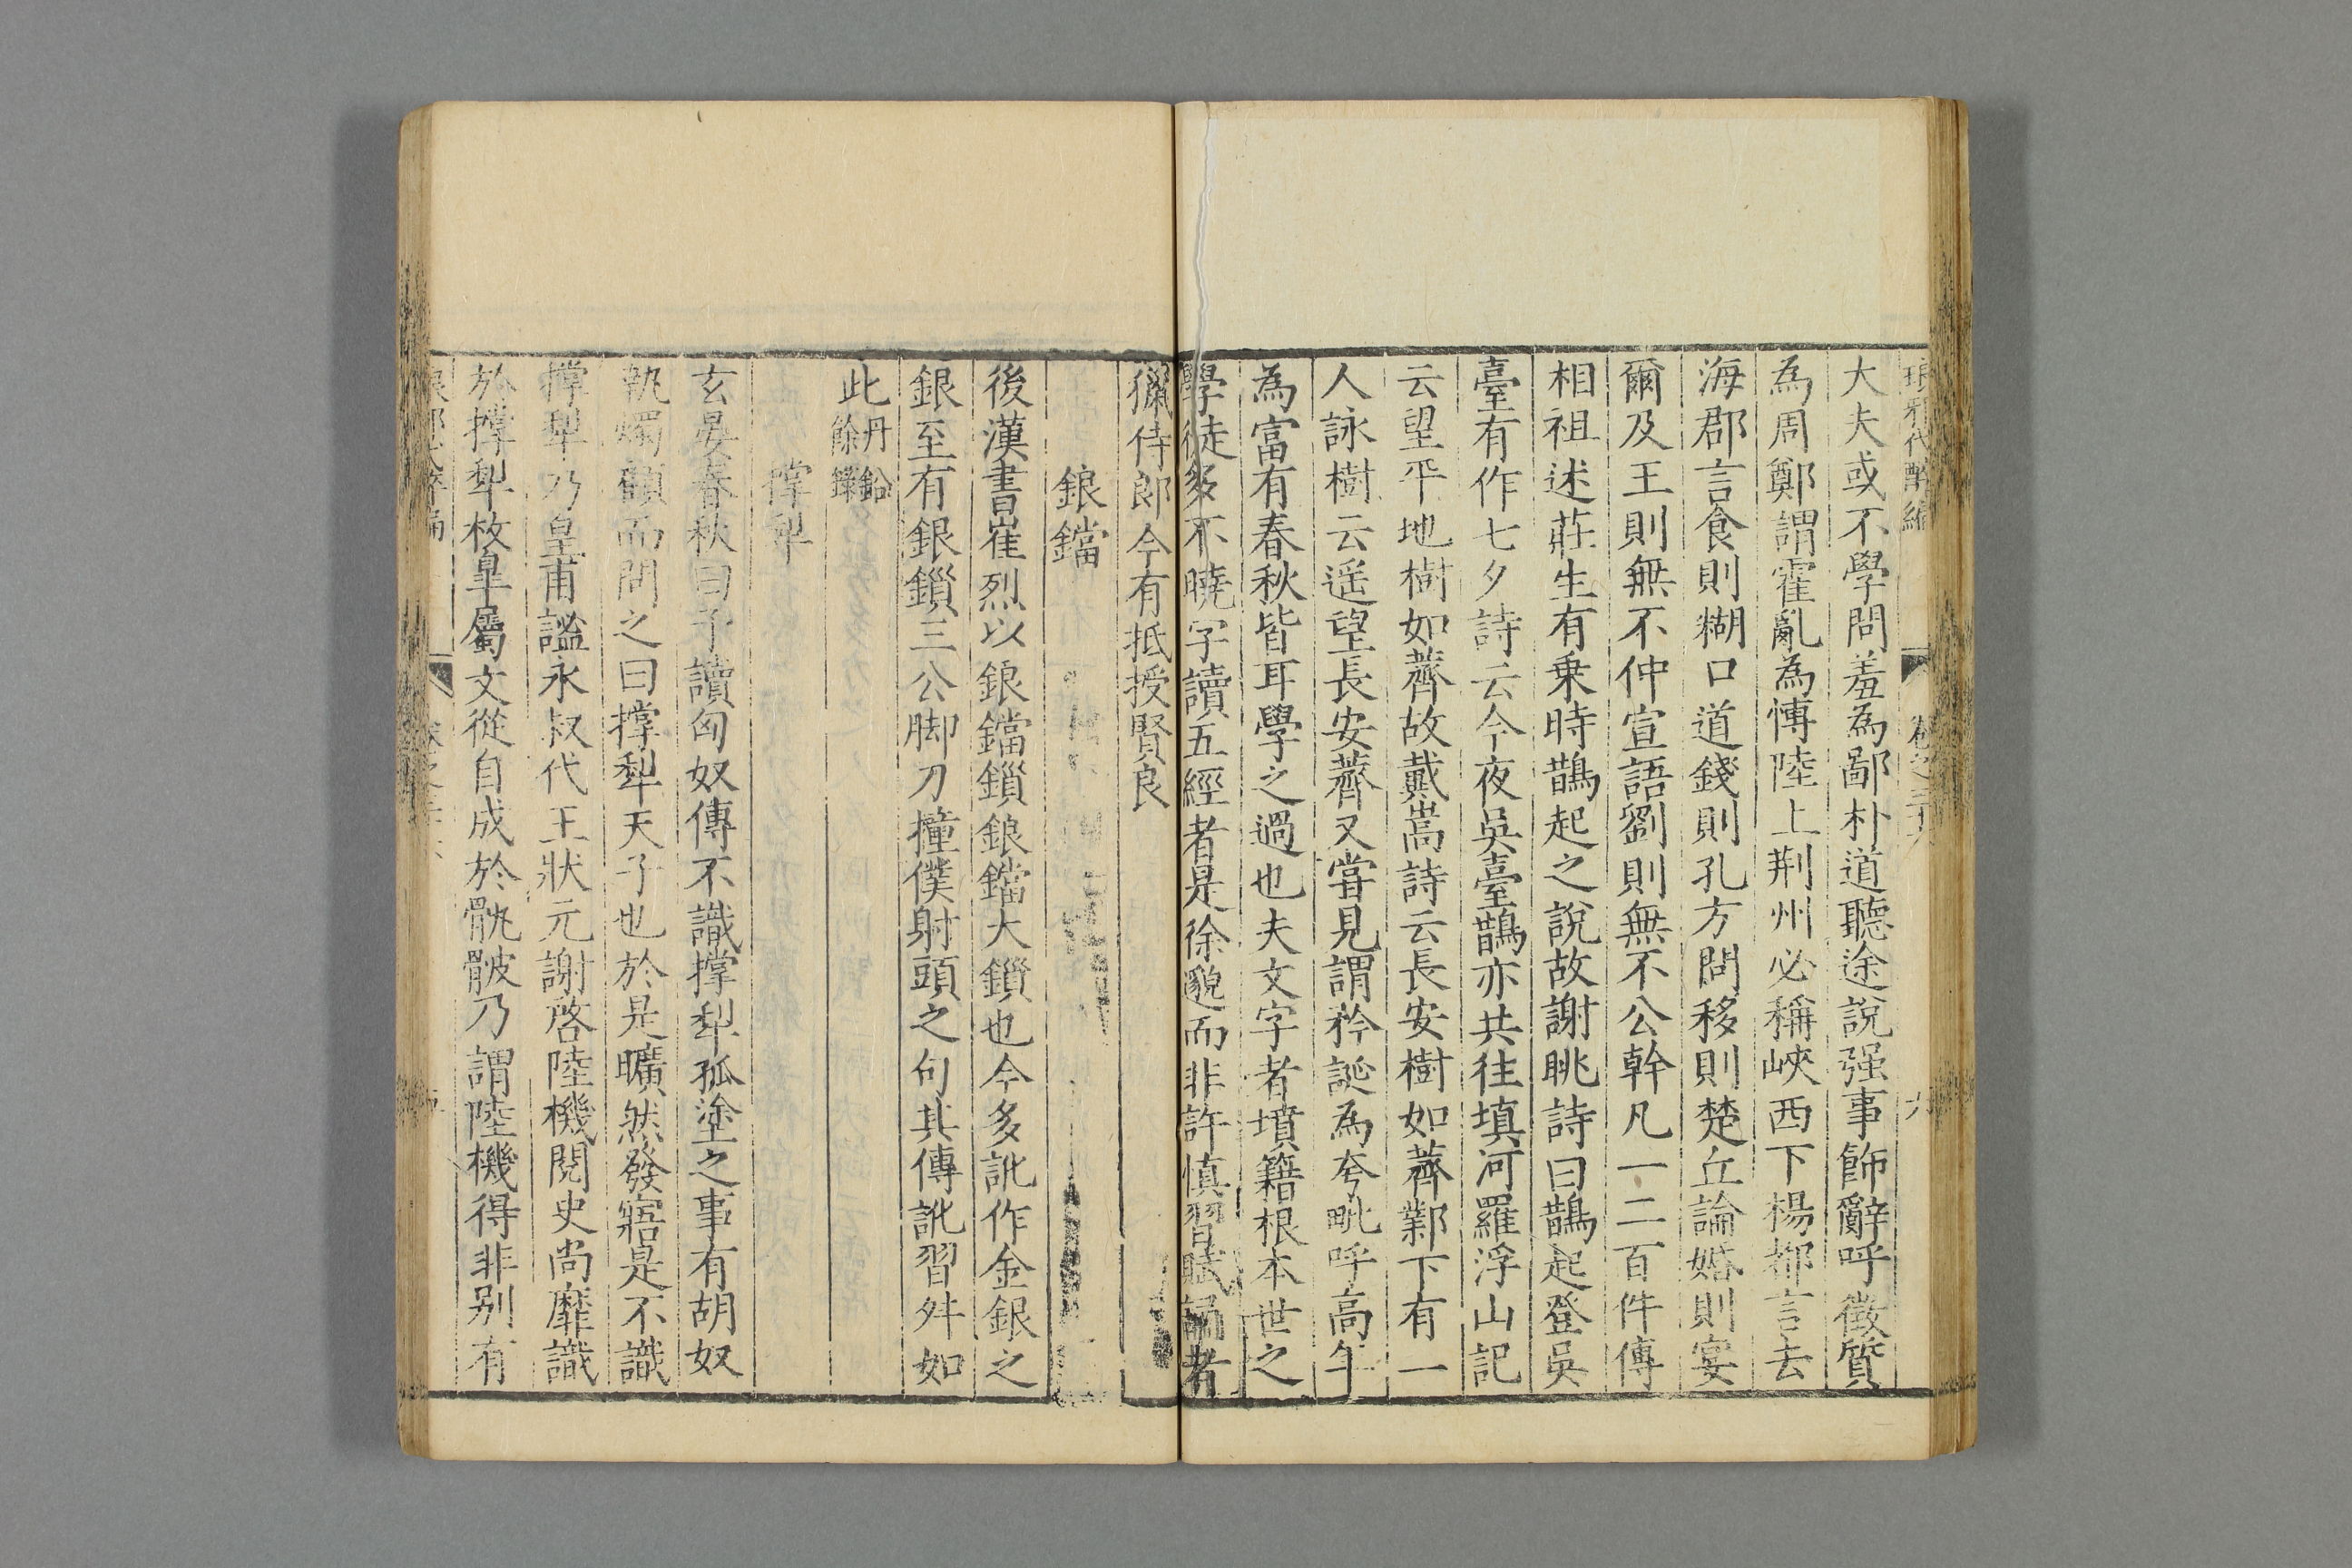 琅邪代醉編 卷之三十六 九
大夫或不學問羞為鄙朴道聽途說强事飾辭呼徵質
為周鄭謂霍亂為愽陸上荆州必稱峽西下楊都言去
海郡言食則糊口道錢則孔方問移則楚丘論婚則宴
爾及王則無不仲宣語劉則無不公幹凡一二百件傳
相祖述莊生有乗時鵲起之說故謝眺詩曰鵲起登吳
臺有作七夕詩云今夜吳臺鵲亦共往填河羅浮山記
云望平地樹如薺故戴暠詩云長安樹如薺鄴下有一
人詠樹云遥望長安薺又甞見謂矜誕為夸毗呼高年
為富有春秋皆耳學之過也夫文字者墳籍根本世之
學徒多不曉字讀五經者是徐邈而非許慎習賦誦者
獵侍郎今有抵授賢良
鋃鐺
後漢書崔烈以鋃鐺鎖鋃鐺大鎖也今多訛作金銀之
銀至有銀鎖三公脚刀撞僕射頭之句其傳訛習舛如
此丹鉛餘錄
撑犁
玄晏春秋曰予讀匈奴傳不識撑犁孤塗之事有胡奴
執燭顧而問之曰撑犁天子也於是曠然發寤是不識
撑犁乃皇甫謐永叔代王狀元謝啓陸機閱史尚靡識
於撑犁枚皐屬文從自成於骫骳乃謂陸機得非别有